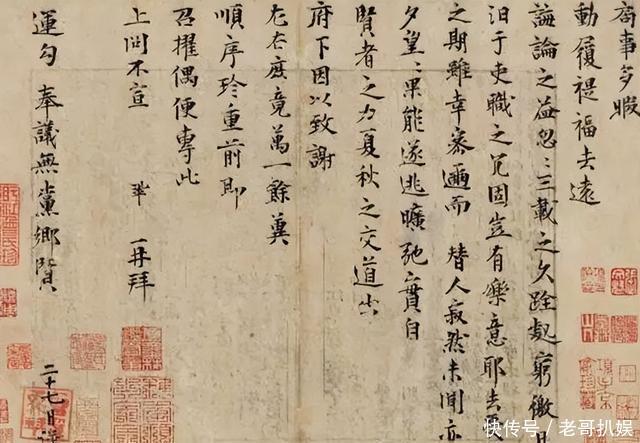 局事多暇
動履禔福去遠
誨論之益忽〻三載之久跧處窮徼日
汩于吏職之冗固豈有樂意耶去受
之期雖幸密邇而替人寂然未聞亦
夕望〻果能遂逃曠弛實自
賢者之力夏秋之交道出
府下因以致謝
左右庶竟萬一餘冀
順序珍重前即
召擢偶便專此
上問不宣 鞏 再拜
運勾奉議無黨鄉賢 二十七日謹
快传号/老哥扒娱